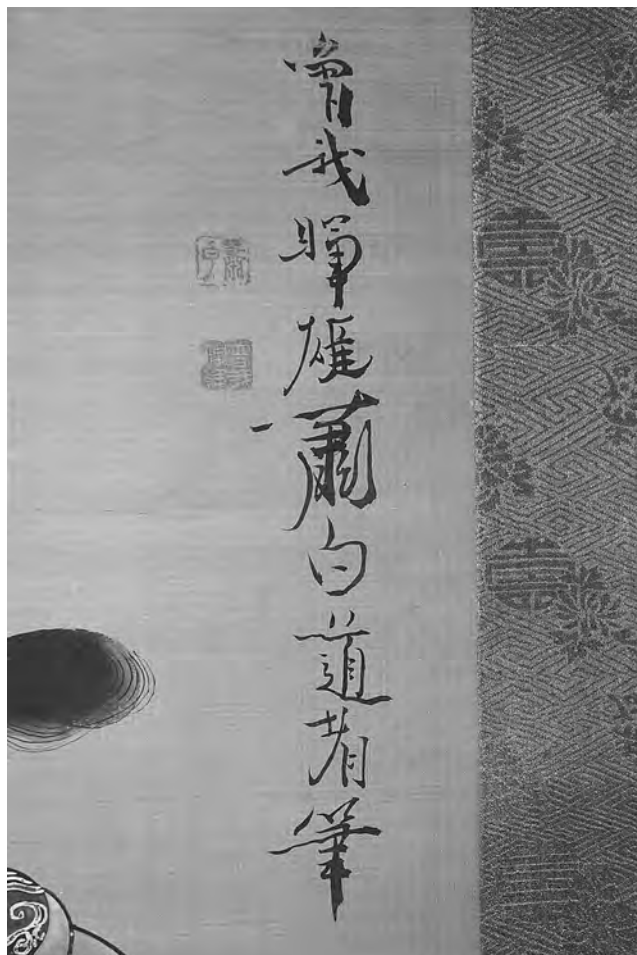 曽我暉雄蕭白道者筆